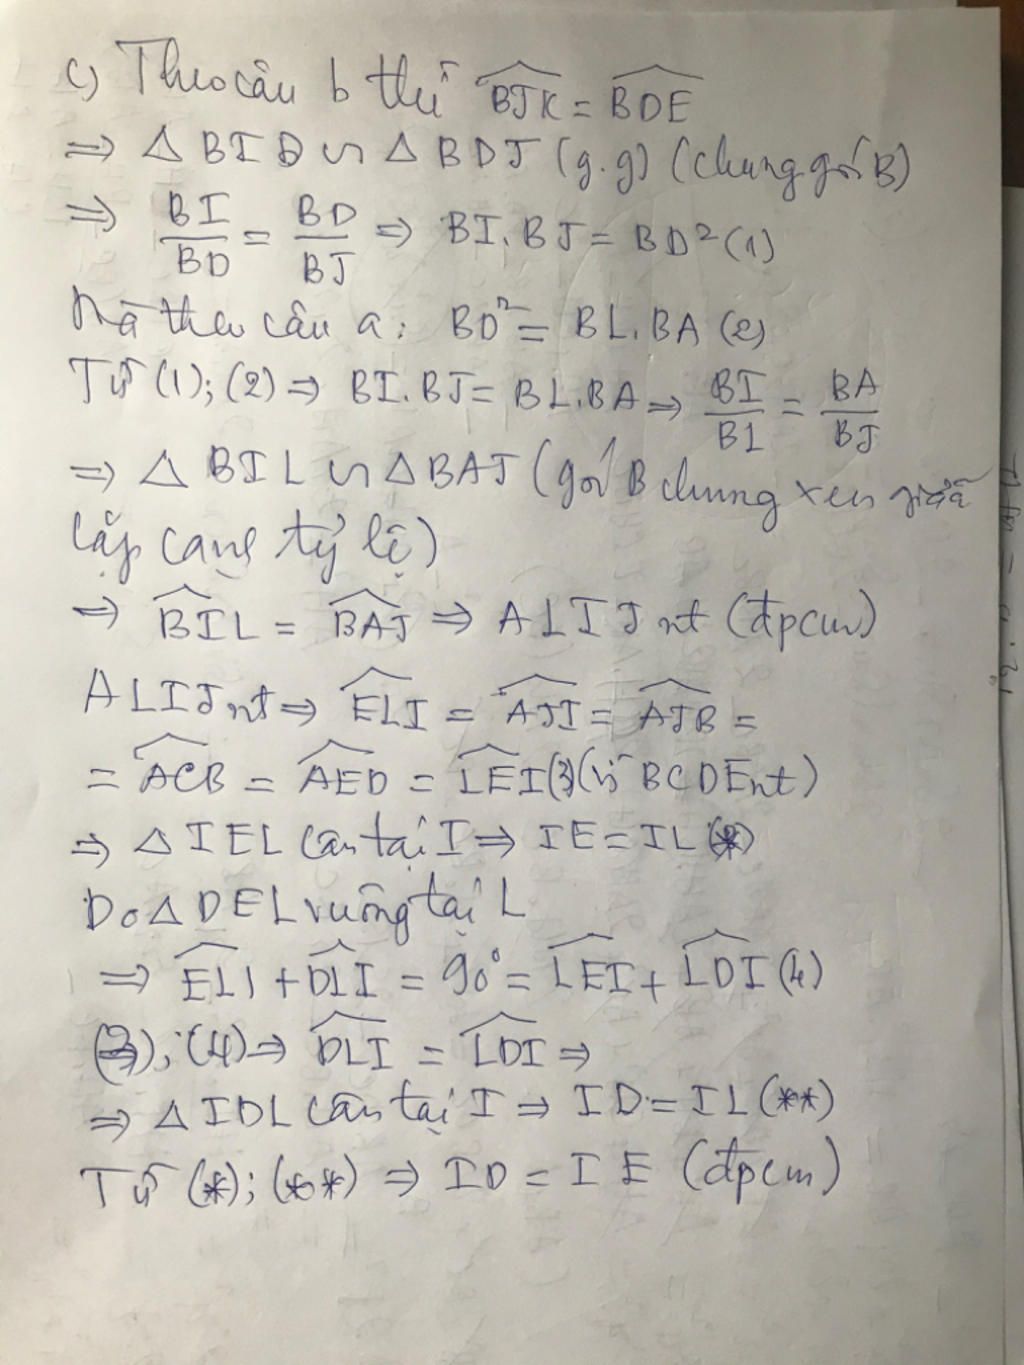 c) Theo câu b thì BJK = BDE
⇒ Δ BID ∽ Δ BDJ (g.g) (chung góc B)
⇒ BI/BD = BD/BJ ⇒ BI.BJ = BD² (1)
Mà theo câu a: BD² = BL.BA (2)
Từ (1); (2) ⇒ BI.BJ = BL.BA ⇒ BI/BL = BA/BJ
⇒ Δ BIL ∽ Δ BAJ (góc B chung xen giữa
cặp cạnh tỷ lệ)
⇒ BIL = BAJ ⇒ ALIJ nt (đpcm)
ALIJ nt ⇒ ELI = AJI = AJB =
= ACB = AED = LEI (3) (vì BCDE nt)
⇒ Δ IEL cân tại I ⇒ IE = IL (*)
Do Δ DEL vuông tại L
⇒ ELI + DLI = 90° = LEI + LDI (4)
(3); (4) ⇒ DLI = LDI ⇒
⇒ Δ IDL cân tại I ⇒ ID = IL (**)
Từ (*); (**) ⇒ ID = IE (đpcm)